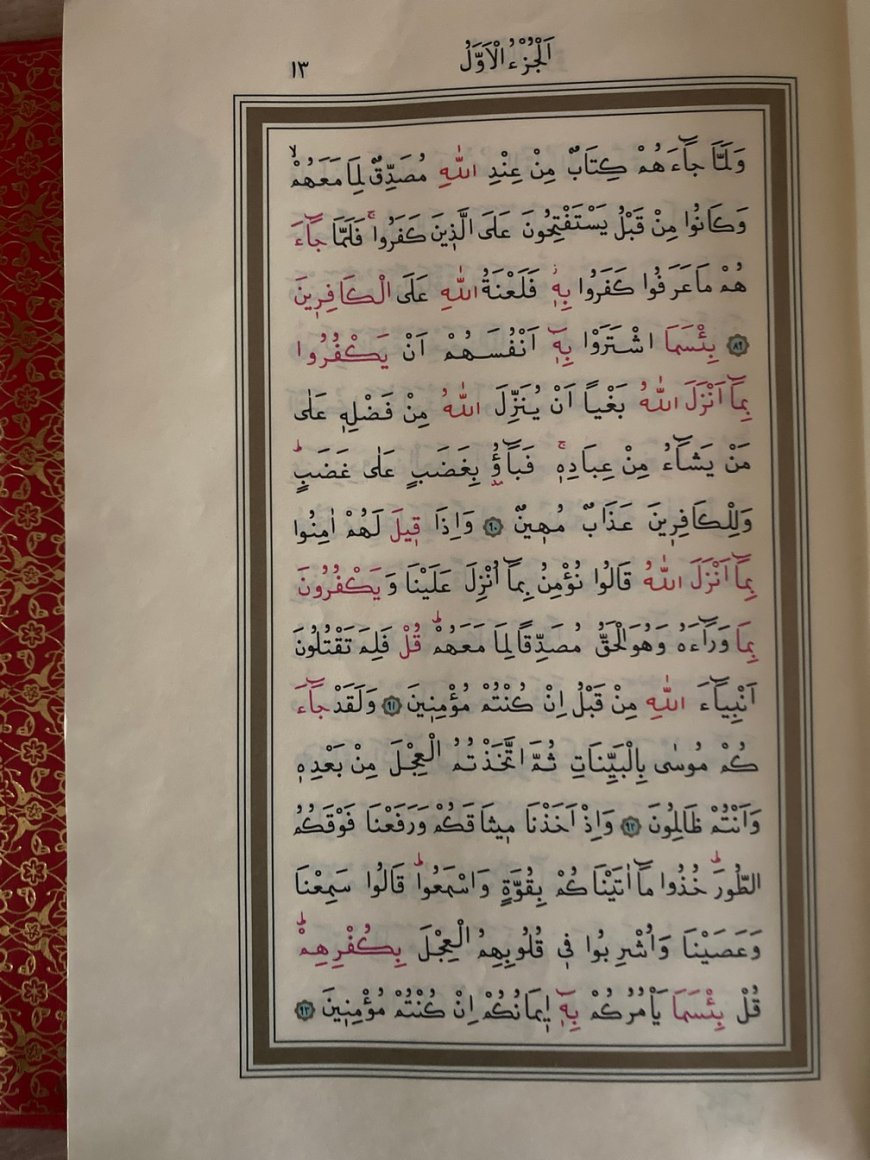 اَلْجُزْءُ الْاَوَّلُ
١٣
وَلَمَّا جَٓاءَهُمْ كِتَابٌ مِنْ عِنْدِ اللّٰهِ مُصَدِّقٌ لِمَا مَعَهُمْۙ
وَكَانُوا مِنْ قَبْلُ يَسْتَفْتِحُونَ عَلَى الَّذ۪ينَ كَفَرُواۚ فَلَمَّا جَٓاءَ
هُمْ مَا عَرَفُوا كَفَرُوا بِه۪ۘ فَلَعْنَةُ اللّٰهِ عَلَى الْكَافِر۪ينَ
﴿٨٩﴾ بِئْسَمَا اشْتَرَوْا بِه۪ٓ اَنْفُسَهُمْ اَنْ يَكْفُرُوا
بِمَٓا اَنْزَلَ اللّٰهُ بَغْياً اَنْ يُنَزِّلَ اللّٰهُ مِنْ فَضْلِه۪ عَلٰى
مَنْ يَشَٓاءُ مِنْ عِبَادِه۪ۚ فَبَٓاؤُ۫ بِغَضَبٍ عَلٰى غَضَبٍۜ
وَلِلْكَافِر۪ينَ عَذَابٌ مُه۪ينٌ ﴿٩٠﴾ وَاِذَا ق۪يلَ لَهُمْ اٰمِنُوا
بِمَٓا اَنْزَلَ اللّٰهُ قَالُوا نُؤْمِنُ بِمَٓا اُنْزِلَ عَلَيْنَا وَيَكْفُرُونَ
بِمَا وَرَٓاءَهُ وَهُوَ الْحَقُّ مُصَدِّقاً لِمَا مَعَهُمْۜ قُلْ فَلِمَ تَقْتُلُونَ
اَنْبِيَٓاءَ اللّٰهِ مِنْ قَبْلُ اِنْ كُنْتُمْ مُؤْمِن۪ينَ ﴿٩١﴾ وَلَقَدْ جَٓاءَ
كُمْ مُوسٰى بِالْبَيِّنَاتِ ثُمَّ اتَّخَذْتُمُ الْعِجْلَ مِنْ بَعْدِه۪
وَاَنْتُمْ ظَالِمُونَ ﴿٩٢﴾ وَاِذْ اَخَذْنَا م۪يثَاقَكُمْ وَرَفَعْنَا فَوْقَكُمُ
الطُّورَۜ خُذُوا مَٓا اٰتَيْنَاكُمْ بِقُوَّةٍ وَاسْمَعُواۜ قَالُوا سَمِعْنَا
وَعَصَيْنَا وَاُشْرِبُوا ف۪ي قُلُوبِهِمُ الْعِجْلَ بِكُفْرِهِمْۜ
قُلْ بِئْسَمَا يَأْمُرُكُمْ بِه۪ٓ ا۪يمَانُكُمْ اِنْ كُنْتُمْ مُؤْمِن۪ينَ ﴿٩٣﴾